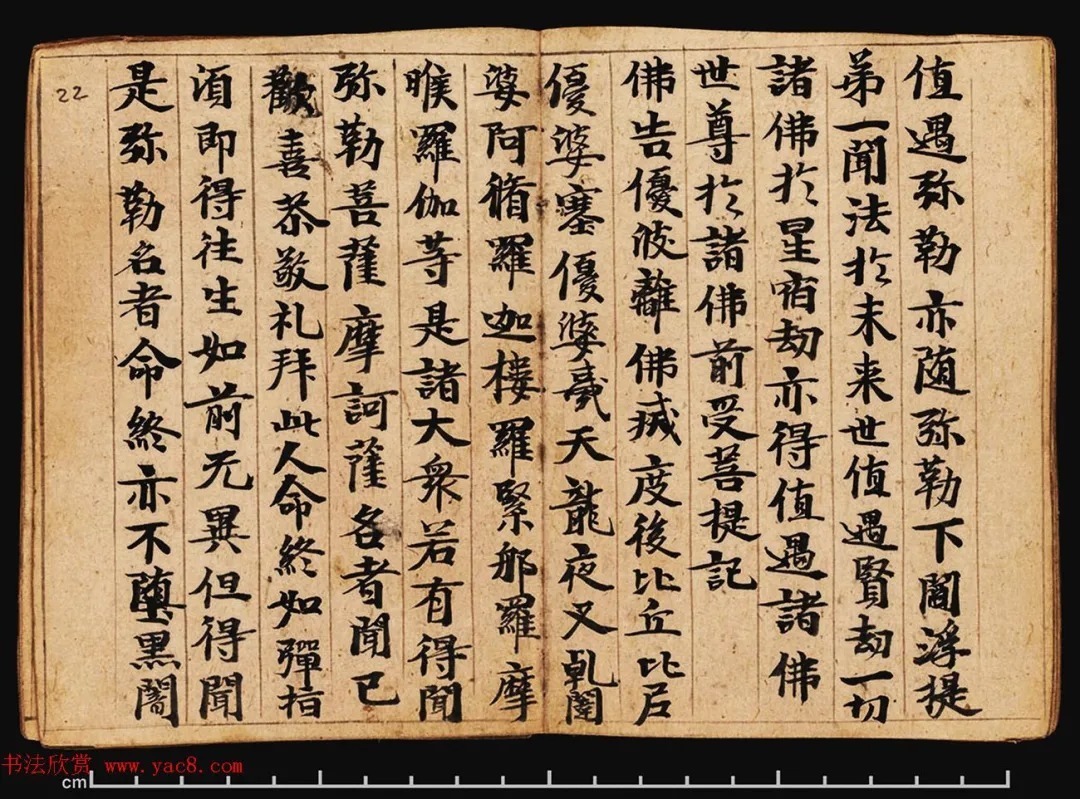 值遇弥勒亦随弥勒下閻浮提
弟一聞法於未来世值遇賢劫一切
諸佛於星宿劫亦得值遇諸佛
世尊於諸佛前受菩提記
佛告優波離佛滅度後比丘比尼
優婆塞優婆夷天龍夜叉乹闥
婆阿脩羅迦樓羅緊那羅摩
睺羅伽等是諸大衆若有得聞
弥勒菩薩摩訶薩名者聞已
歡喜恭敬礼拜此人命終如彈指
湏即得往生如前无異但得聞
是弥勒名者命終亦不堕黒闇
22
书法欣赏 www.yac8.com
cm